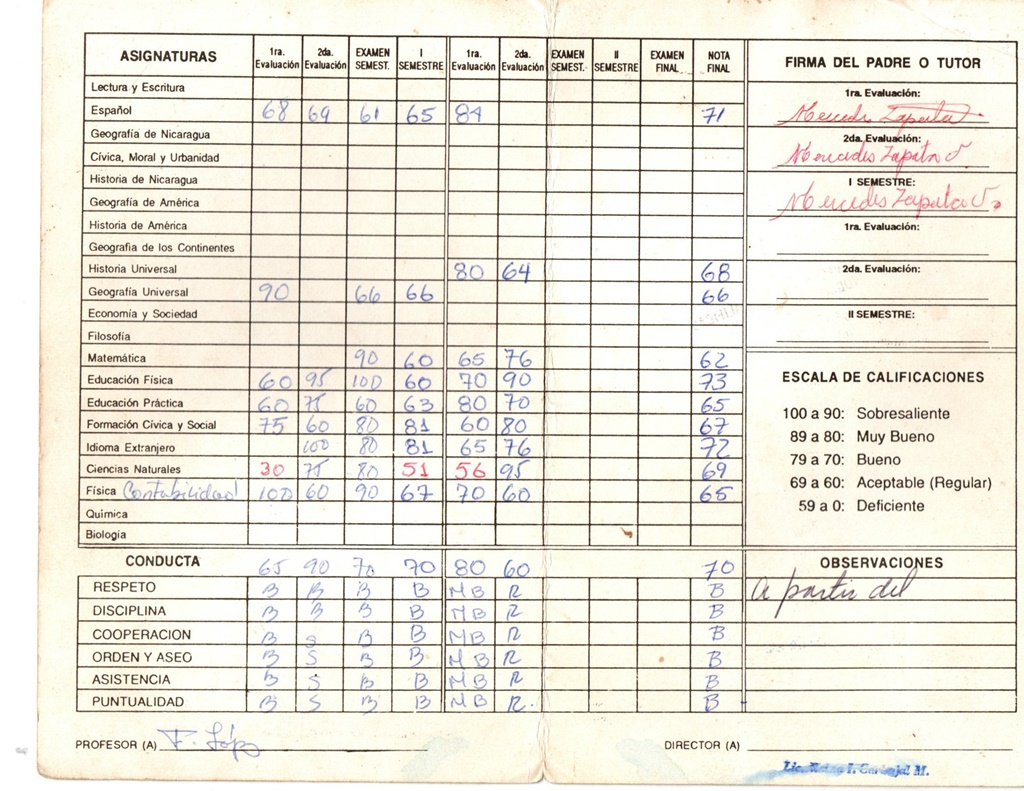 ASIGNATURAS 1ra. Evaluación 2da. Evaluación EXAMEN SEMEST. I SEMESTRE 1ra. Evaluación 2da. Evaluación EXAMEN SEMEST. II SEMESTRE EXAMEN FINAL NOTA FINAL FIRMA DEL PADRE O TUTOR
Lectura y Escritura
1ra. Evaluación:
Español 68 69 61 65 84 71
Zapata
Geografía de Nicaragua
2da. Evaluación:
Cívica, Moral y Urbanidad
Mercedes Zapata
Historia de Nicaragua
I SEMESTRE:
Geografía de América
Mercedes Zapata
Historia de América
1ra. Evaluación:
Geografia de los Continentes
Historia Universal 80 64 68
2da. Evaluación:
Geografía Universal 90 66 66 66
Economía y Sociedad
II SEMESTRE:
Filosofía
Matemática 90 60 65 76 62
Educación Física 60 95 100 60 70 90 73
ESCALA DE CALIFICACIONES
Educación Práctica 60 75 60 63 80 70 65
100 a 90: Sobresaliente
Formación Cívica y Social 75 60 80 81 60 80 67
89 a 80: Muy Bueno
Idioma Extranjero 100 80 81 65 76 72
79 a 70: Bueno
Ciencias Naturales 30 75 80 51 56 95 69
69 a 60: Aceptable (Regular)
Física Contabilidad 100 60 90 67 70 60 65
59 a 0: Deficiente
Química
Biologia
CONDUCTA 65 90 70 70 80 60 70 OBSERVACIONES
RESPETO B B B B MB R B A partir del
DISCIPLINA B B B B MB R B
COOPERACION B S B B MB R B
ORDEN Y ASEO B S B B MB R B
ASISTENCIA B S B B MB R B
PUNTUALIDAD B S B B MB R. B
PROFESOR (A) F. Lóp DIRECTOR (A)
Lic. M.